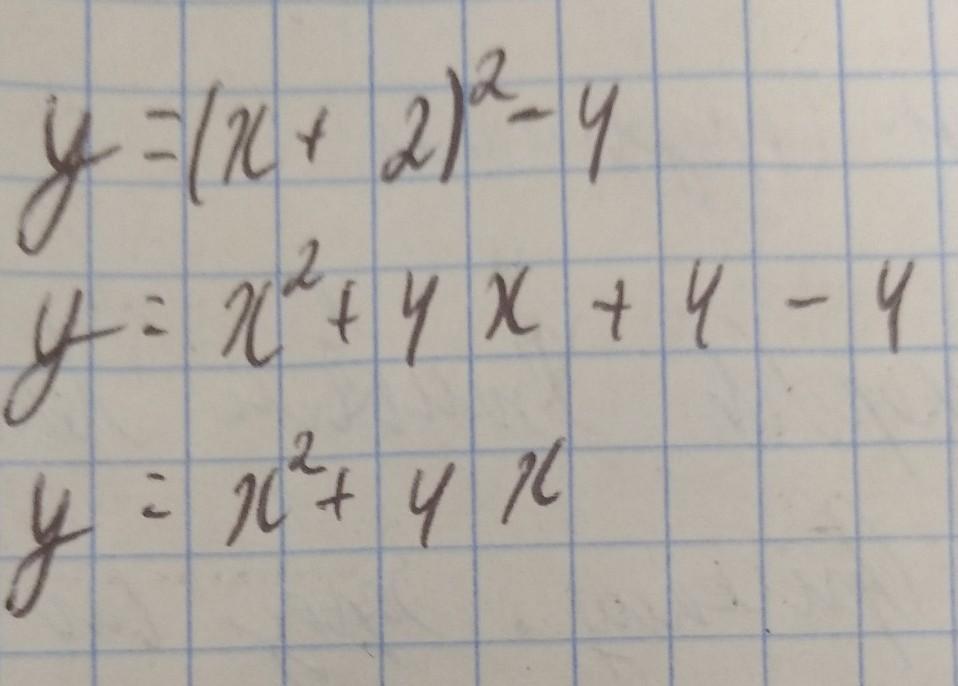 y = (x + 2)² - 4
y = x² + 4x + 4 - 4
y = x² + 4x